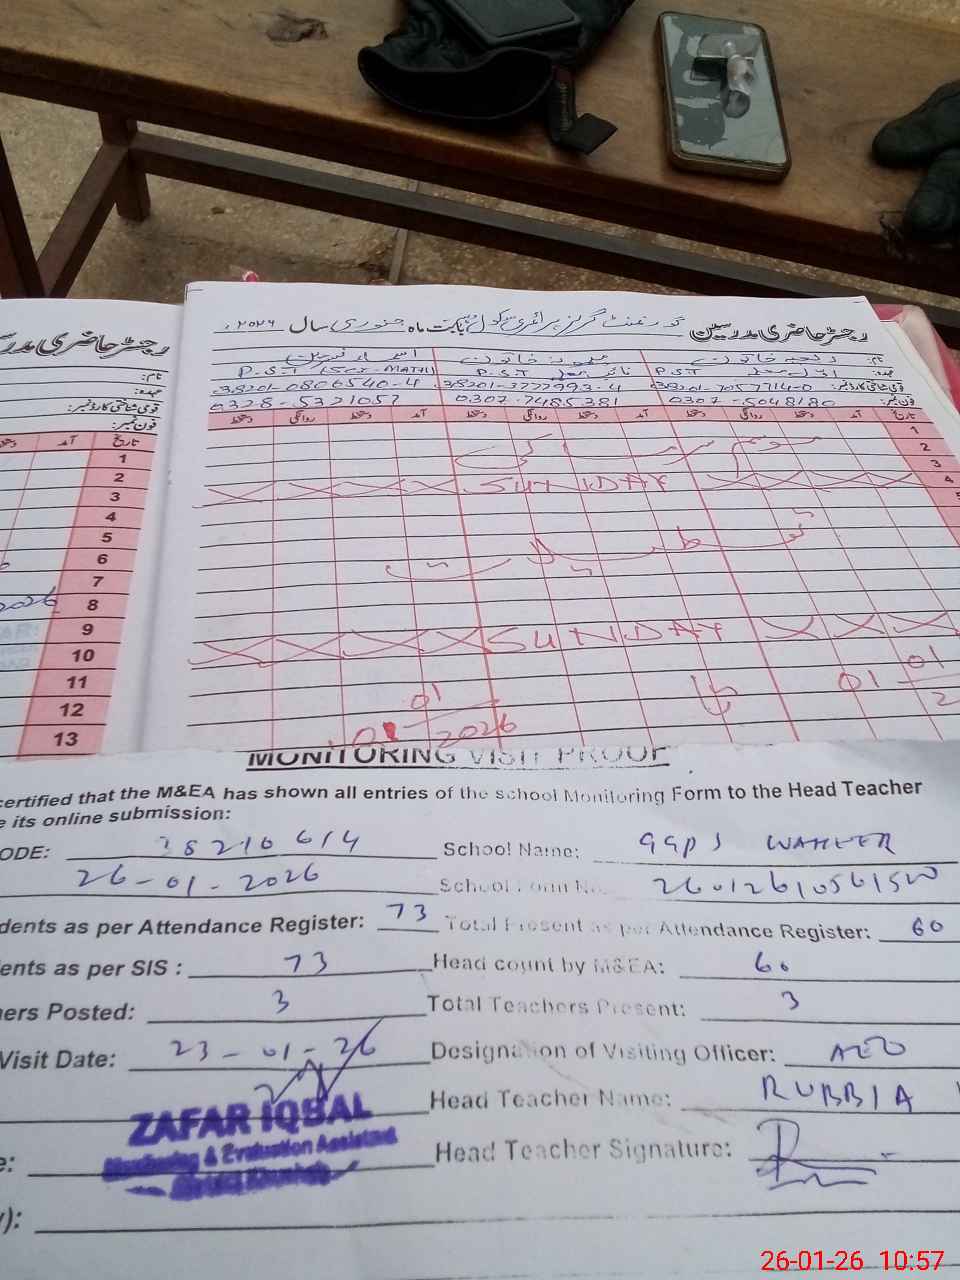 رجسٹر حاضری مدرسین گورنمنٹ گرلز پرائمری سکول بابت ماہ جنوری سال ۲۰۲۶ء
نام: خاتون خاتون
عہدہ: P.S.T P.S.T P.S.T (SCI-MATH)
قومی شناختی کارڈ نمبر: 38201-7057714-0 38201-3777993-4 38201-0806540-4
فون نمبر: 0307-5048180 0307-7485381 0328-5321057
تاریخ آمد دستخط روانگی دستخط آمد دستخط روانگی دستخط آمد دستخط روانگی دستخط
1
2
3
4
5
موسم سرما کی
SUNDAY
تعطیلات
SUNDAY
01 01 2
01 01 2026
رجسٹر حاضری
نام:
عہدہ:
قومی شناختی کارڈ نمبر:
فون نمبر:
تاریخ آمد
1
2
3
4
5
6
7
8
9
10
11
12
13
2026
MONITORING VISIT PROOF
certified that the M&EA has shown all entries of the school Monitoring Form to the Head Teacher
e its online submission:
ODE: 38210614 School Name: GGPS WAHEER
26-01-2026 School Form No.
dents as per Attendance Register: 73 Total Present as per Attendance Register: 60
ents as per SIS : 73 Head count by M&EA: 60
hers Posted: 3 Total Teachers Present: 3
Visit Date: 23-01-26 Designation of Visiting Officer: AEO
Head Teacher Name: RUBBIA
ZAFAR IQBAL
Monitoring & Evaluation Assistant
District Khushab
e: Head Teacher Signature:
):
26-01-26 10:57